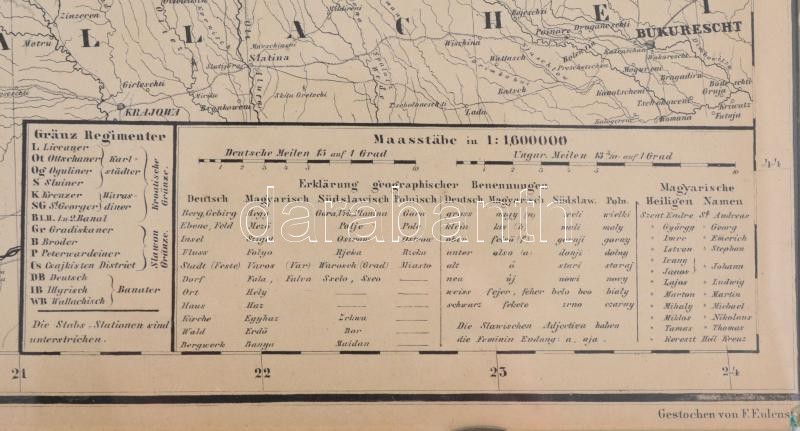 Zinzeren
Motru
Mildireni
Rojeschti
Drugäneschti
ALLACHEI
BUKURESCHT
Wischina
Slatina
Wakureschti
Mogurei
Girleschti
Skitu Gretschi
Batsch
Bragadiru
KRAJOWA
Brankoweni
Lada
Romana
Gränz Regimenter
L Liccaner
Ot Ottochaner
Og Oguliner
S Sluiner
Karlstädter
K Kreuzer
SG St Georger
Warasdiner
B I. II. 1 u 2. Banal
Kroatische Gränze.
Gr Gradiskaner
B Broder
P Peterwardeiner
Cs Csajkisten District
Slawon Gränze.
DB Deutsch
IB Illyrisch
WB Wallachisch
Banater
Die Stabs-Stationen sind
unterstrichen.
Maasstäbe in 1:1,600000
Deutsche Meilen 15 auf 1 Grad
Ungar. Meilen 13 auf 1 Grad
10
10
Erklärung geographischer Benennungen
Deutsch Magyarisch Südslawisch Polnisch
Berg, Gebirg Hegy Gora Planina Gora
Ebene, Feld Mezö Polje Pole
Insel Sziget Ostrow Ostrow
Fluss Folyo Rjeka Rzeka
Stadt (Feste) Varos (Var) Warosch (Grad) Miasto
Dorf Falu, Falva Szelo, Sseo
Ort Hely
Haus Haz
Kirche Egyhaz Zrkwa
Wald Erdö Bor
Bergwerk Banya Maidan
Deutsch Magyarisch Südslaw. Poln.
gross nagy veli wielki
klein kis mali maly
ober felsö gornji gorny
unter also donji dolny
alt o stari staraj
neu uj nowi nowy
weiss fejer, feher belo beo bialy
schwarz fekete zrno czarny
Die Slawischen Adjectiva haben
die Feminin Endung: a, aja.
Magyarische
Heiligen Namen
Szent Endre St Andreas
" György " Georg
" Imre " Emerich
" Istvan " Stephan
" Ivang
" Janos " Johann
" Lajos " Ludwig
" Marton " Martin
" Mihaly " Michael
" Miklos " Nikolaus
" Tamas " Thomas
" Kereszt Heil Kreuz
44
21 22 23 24
Gestochen von F. Eulens
darabanth